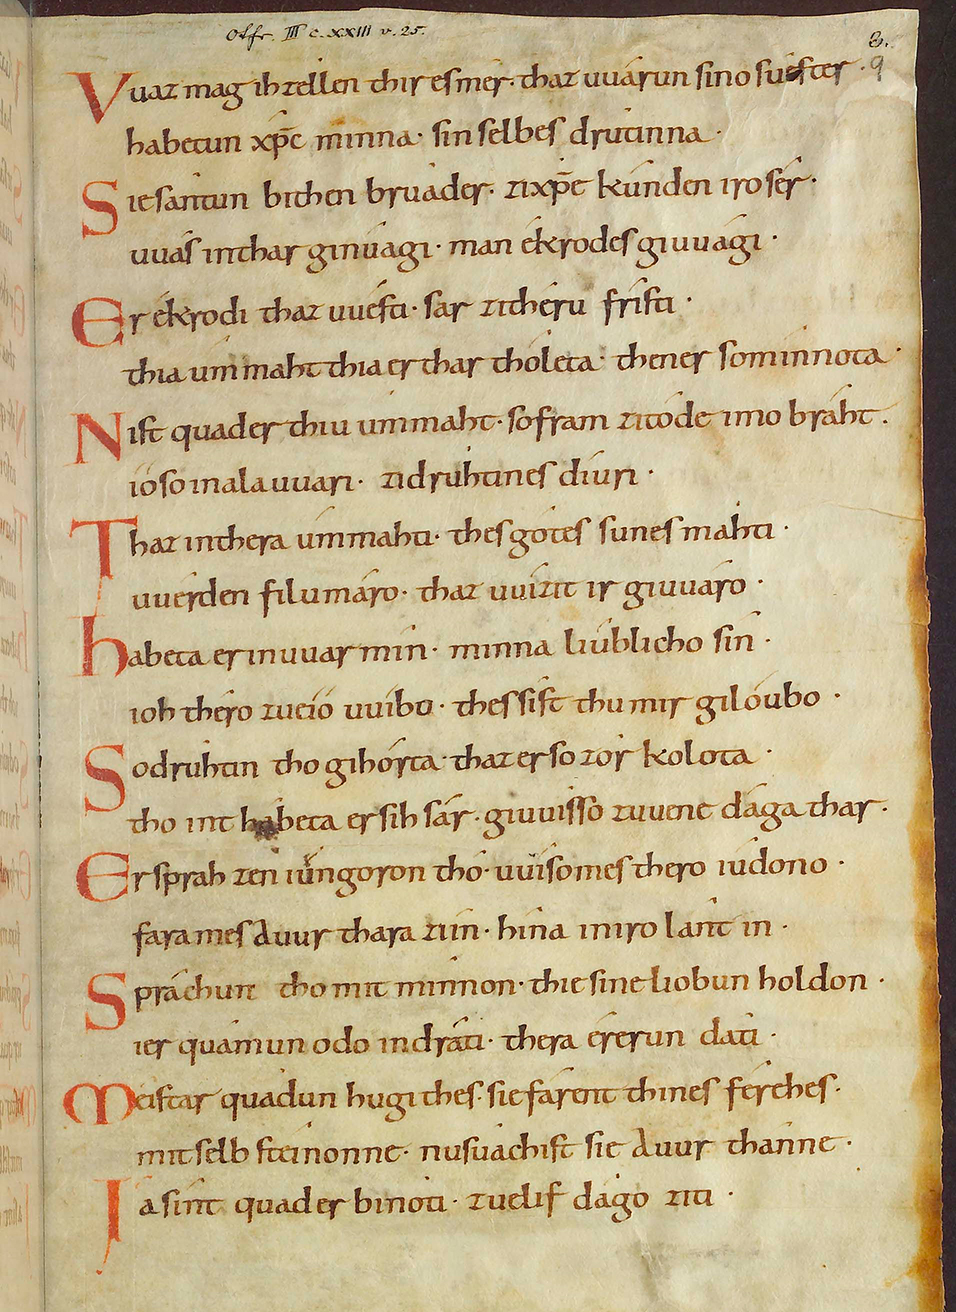 Otfr. III c. XXIII v. 25.
8.
9
Vuaz mag ih zellen thir es mér· thaz uuárun sino suester·
habetun xp̄c mínna· sin selbes drútinna·
Sie sántun bi then bruáder· zi xp̄c kúnden iro sér·
uuás in thar ginúagi· man ékrodes giuuági·
Er ékrodi thaz uuésti· sar zi théru frísti·
thia úmmaht thia er thar thóleta· then er so mínnota·
Nist quad er thiu úmmaht· so fram zi tóde imo bráht·
ió so in ala uuari· zi drúhtines diuri·
Thaz in thera úmmahti· thes gótes sunes máhti·
uuérden filu máro· thaz uuizit ir giuuáro·
habeta er in uuar mín· minna liúblicho sín·
ioh théro zueió uuíbo· thes sist thu mir gilóubo·
So druhtin tho gihórta· thaz er so zór kolota
tho int habeta er sih sár· giuuísso zuuene dága thar·
Er sprah zen iúngoron thó· uuísomes thero iúdono·
farames áuur thara zi in· hína in iro lánt in·
Spráchun tho mit mínnon· thie sine liobun hóldon·
ier quámun odo in dráti· thera érerun dati·
Meistar quádun hugi thes· sie fárent thines férches·
mit selb steinonne· nu suáchist sie áuur thánne·
Ia sínt quad er binoti· zuelif dágo ziti·